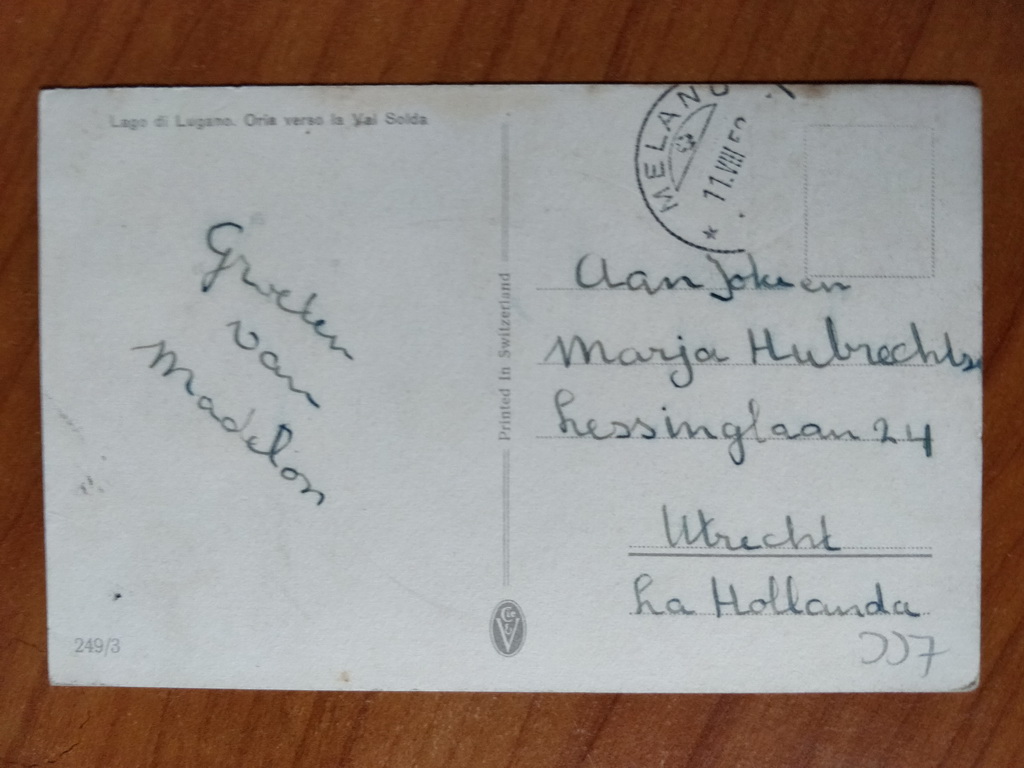 Lago di Lugano. Oria verso la Val Solda
MELANO
11.VIII 5
Groeten
van
Madelon
Printed in Switzerland
Aan Joke en
Marja Hubrechtse
Lessinglaan 24
Utrecht
La Hollanda
249/3